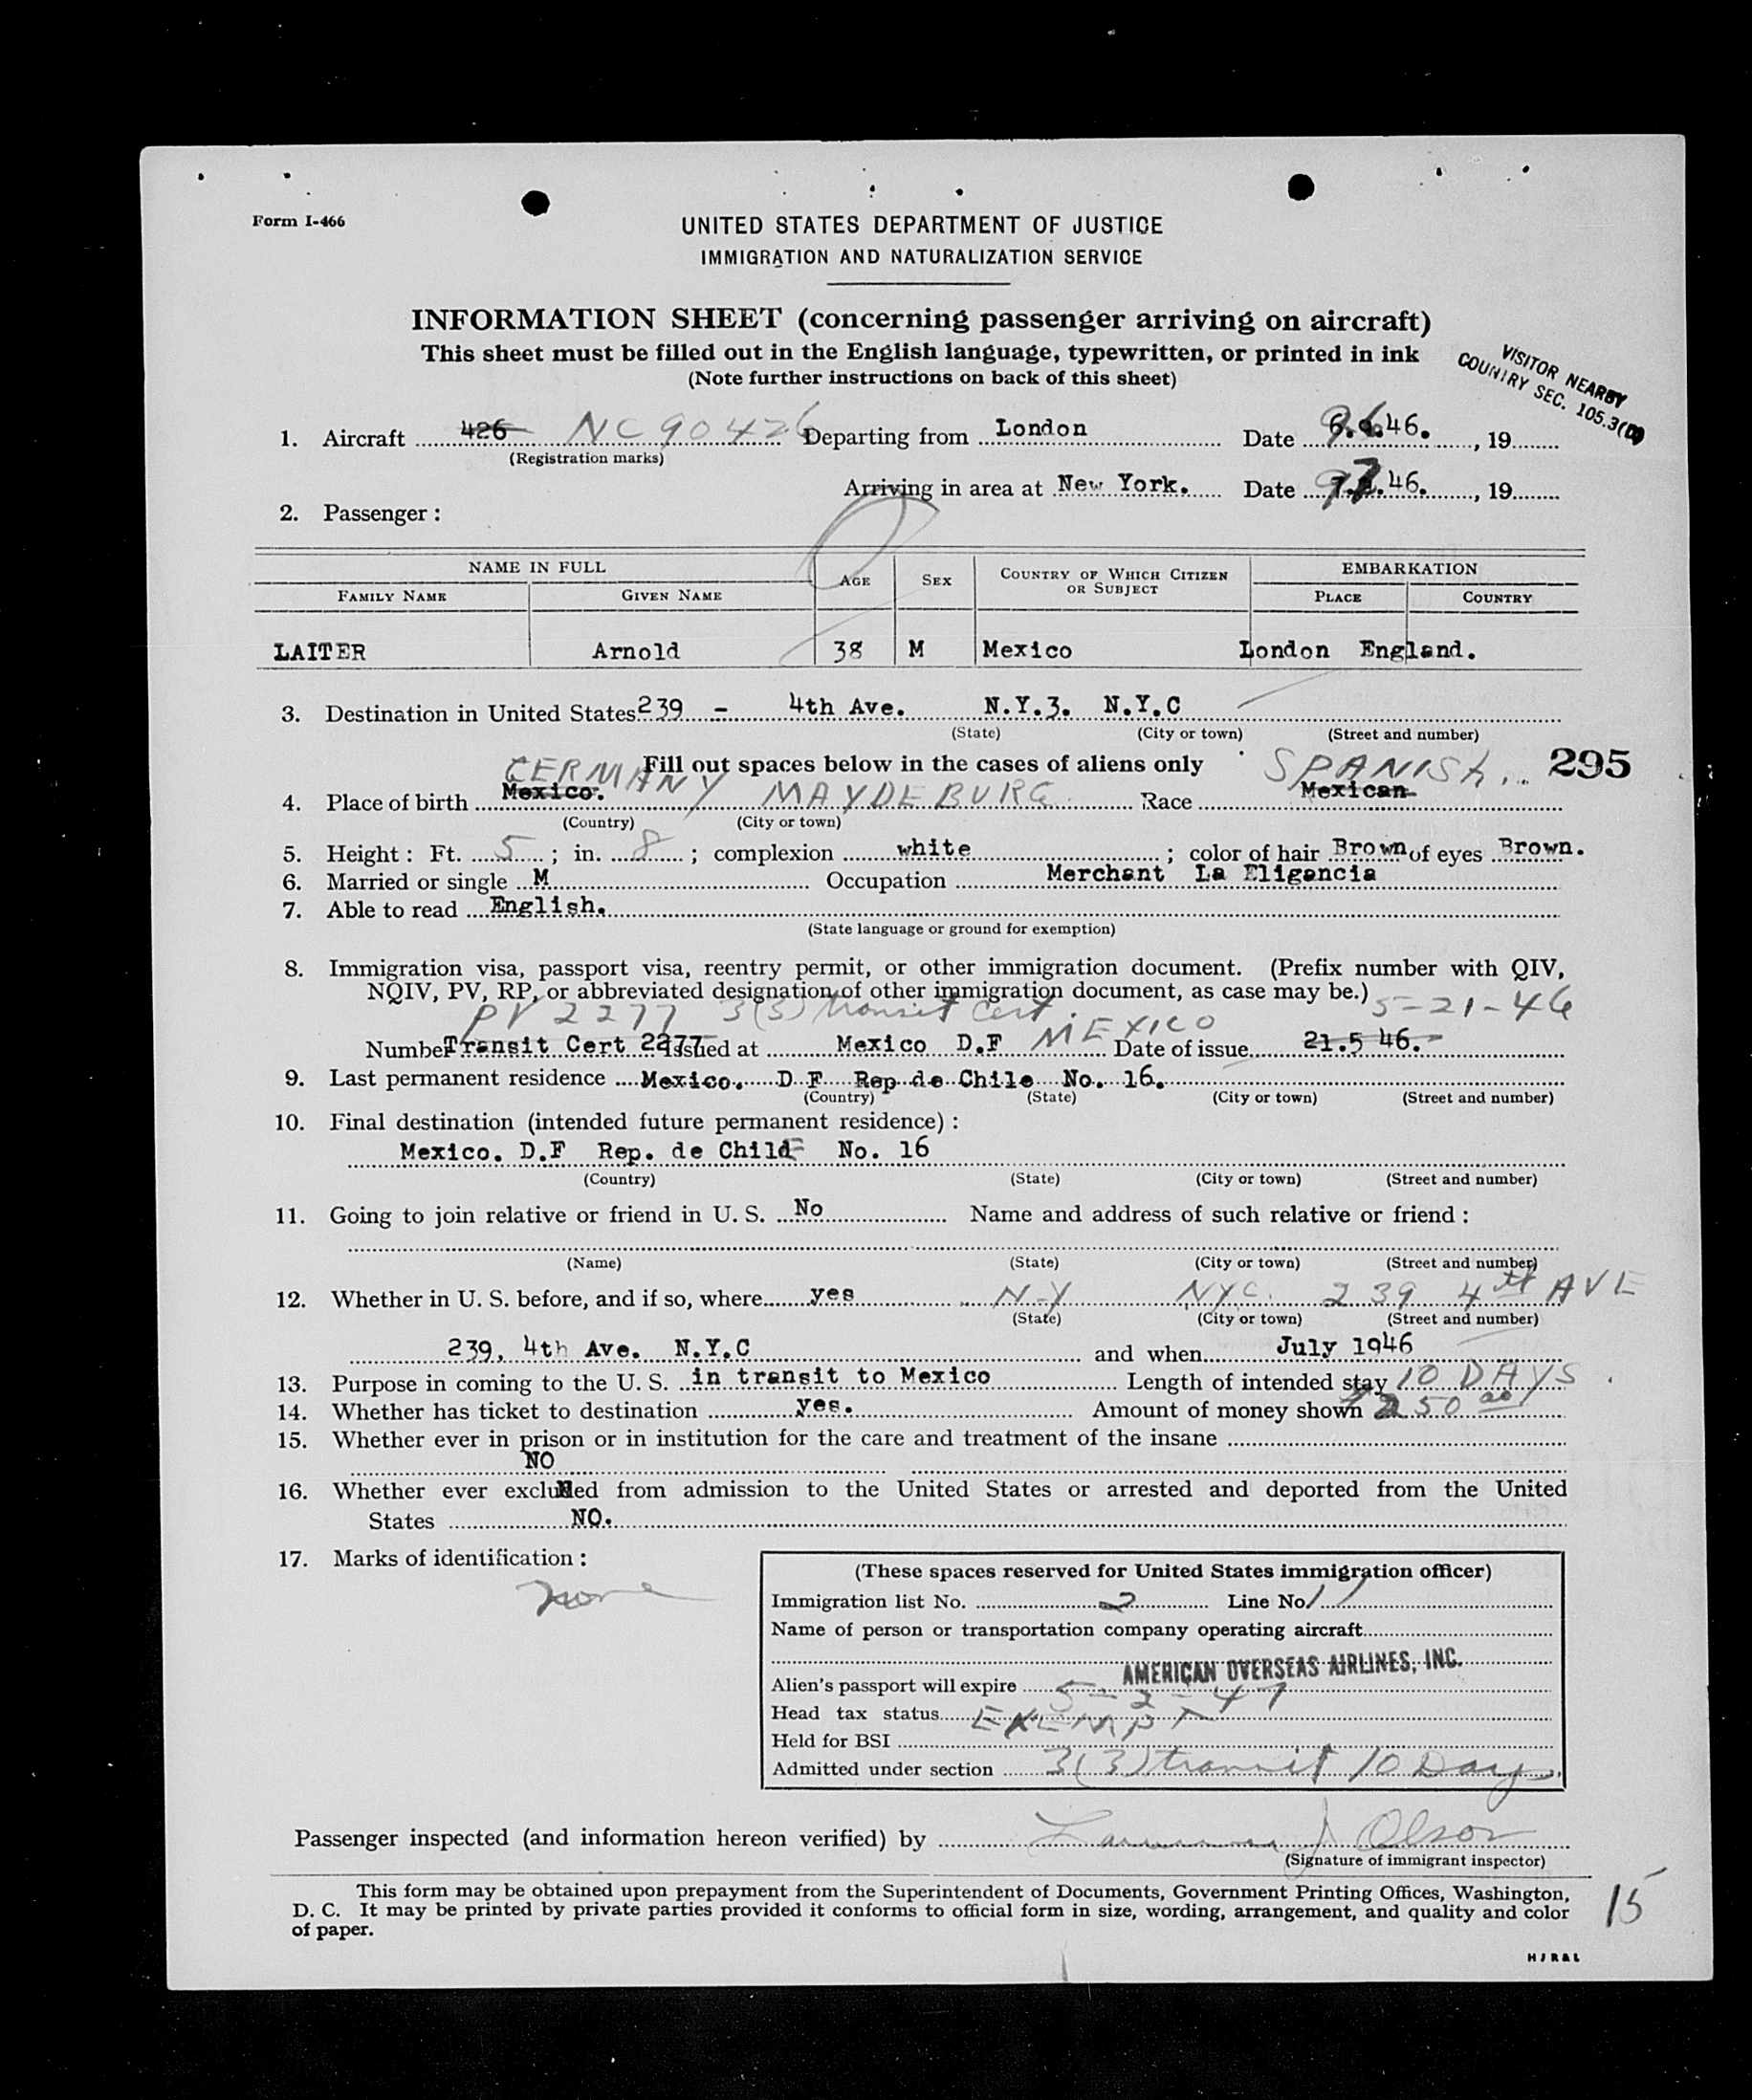 Form I-466
UNITED STATES DEPARTMENT OF JUSTICE
IMMIGRATION AND NATURALIZATION SERVICE
INFORMATION SHEET (concerning passenger arriving on aircraft)
This sheet must be filled out in the English language, typewritten, or printed in ink
(Note further instructions on back of this sheet)
VISITOR NEARBY
COUNTRY SEC. 105.3(D)
1. Aircraft 426 NC 90426 Departing from London Date 46. , 19
(Registration marks)
Arriving in area at New York. Date 46. , 19
2. Passenger :
NAME IN FULL AGE SEX COUNTRY OF WHICH CITIZEN OR SUBJECT EMBARKATION
FAMILY NAME GIVEN NAME PLACE COUNTRY
LAITER Arnold 38 M Mexico London England.
3. Destination in United States 239 - 4th Ave. N.Y.3. N.Y.C
(State) (City or town) (Street and number)
Fill out spaces below in the cases of aliens only
295
GERMANY SPANISH
4. Place of birth Mexico. MAYDEBURG Race Mexican
(Country) (City or town)
5. Height : Ft. 5 ; in. 8 ; complexion white ; color of hair Brown of eyes Brown.
6. Married or single M Occupation Merchant La Eligancia
7. Able to read English.
(State language or ground for exemption)
8. Immigration visa, passport visa, reentry permit, or other immigration document. (Prefix number with QIV,
NQIV, PV, RP, or abbreviated designation of other immigration document, as case may be.)
PV 2277 3(3) transit Cert. 5-21-46
Number Transit Cert 2277 Issued at Mexico D.F MEXICO Date of issue 21.5 46.
9. Last permanent residence Mexico. D F Rep de Chile No. 16.
(Country) (State) (City or town) (Street and number)
10. Final destination (intended future permanent residence) :
Mexico. D.F Rep. de Chile No. 16
(Country) (State) (City or town) (Street and number)
11. Going to join relative or friend in U. S. No Name and address of such relative or friend :
(Name) (State) (City or town) (Street and number)
12. Whether in U. S. before, and if so, where yes N-Y NYC. 239 4th AVE
(State) (City or town) (Street and number)
239, 4th Ave. N.Y.C and when July 1946
13. Purpose in coming to the U. S. in transit to Mexico Length of intended stay 10 DAYS.
14. Whether has ticket to destination yes. Amount of money shown 250 00
15. Whether ever in prison or in institution for the care and treatment of the insane
NO
16. Whether ever excluded from admission to the United States or arrested and deported from the United
States NO.
17. Marks of identification :
none
(These spaces reserved for United States immigration officer)
Immigration list No. 2 Line No. 11
Name of person or transportation company operating aircraft
AMERICAN OVERSEAS AIRLINES, INC.
Alien's passport will expire 5-2-47
Head tax status EXEMPT
Held for BSI
Admitted under section 3(3) transit 10 Days
Passenger inspected (and information hereon verified) by J Olson
(Signature of immigrant inspector)
This form may be obtained upon prepayment from the Superintendent of Documents, Government Printing Offices, Washington,
D. C. It may be printed by private parties provided it conforms to official form in size, wording, arrangement, and quality and color
of paper.
15
HJR&L